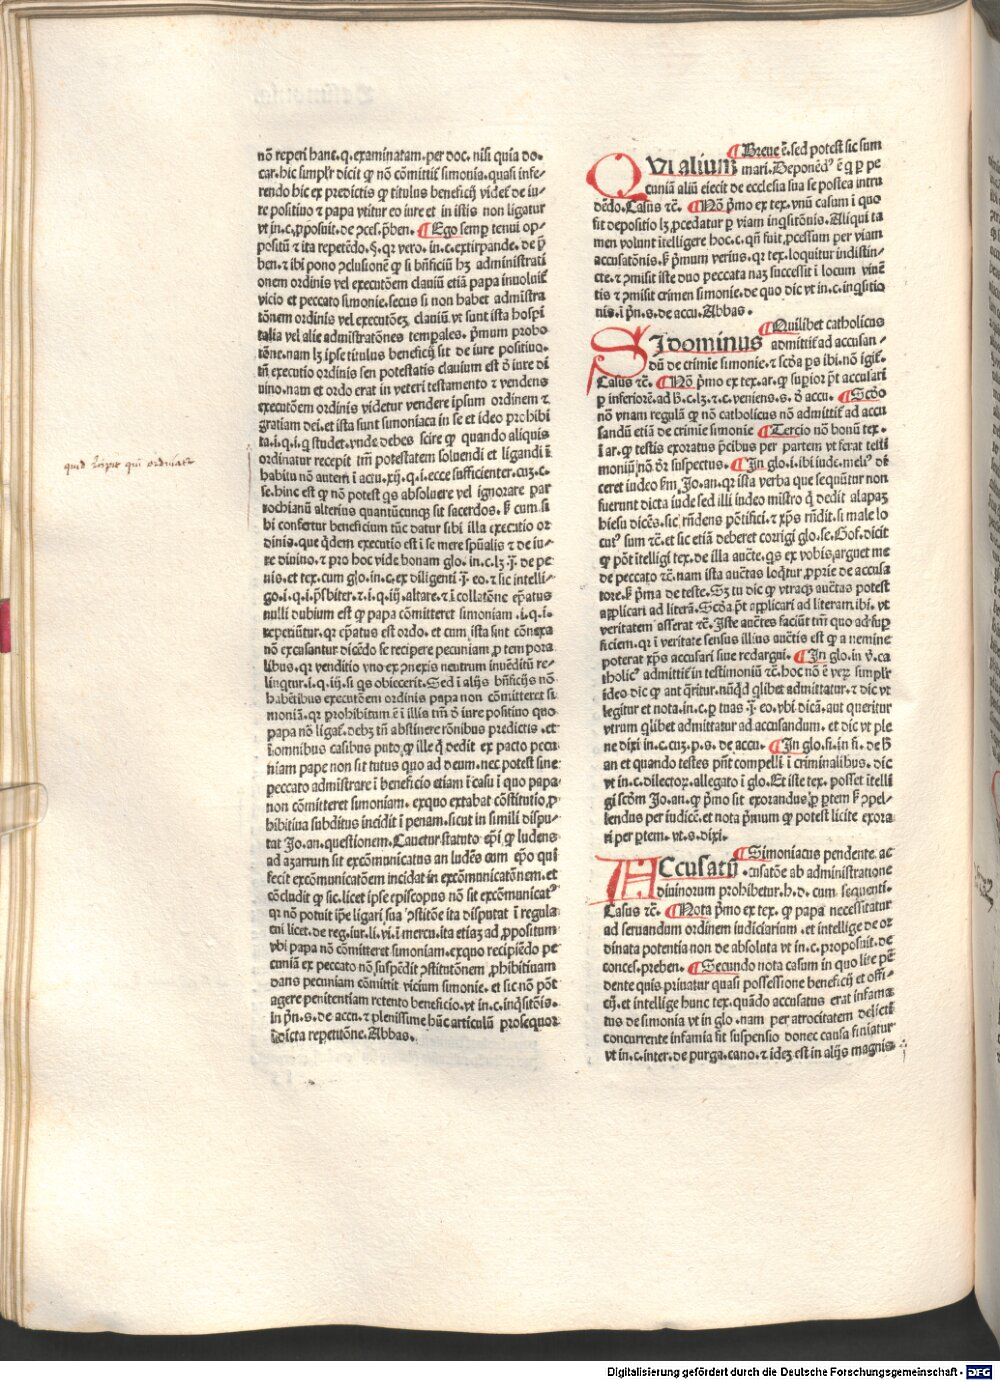 nō reperi hanc.q.examinatam.per doc. nisi quia do⸗
car.hic simplr̄ dicit ꝙ nō cōmittit̄ simonia.quasi infe⸗
rendo hic ex predictis ꝙ titulus beneficij videt̄ de iu⸗
re positiuo ⁊ papa vtitur eo iure et in istis non ligatur
vt in.c.ꝓposuit.de ꝯces.p̄ben. ¶ Ego semꝑ tenui op⸗
positū ⁊ ita repetēdo.§.qꝛ vero.in.c.extirpande.de p̄
ben.⁊ ibi pono ꝯclusionē ꝙ si bn̄ficiū hꝫ administrati
onem ordinis vel executōem clauiū etiā papa inuoluit̄
vicio et peccato simonie.secus si non habet admistra
tōnem ordinis vel executōeꝫ clauiū vt sunt ista hospi
talia vel alie admistratōnes temꝑales. p̄mum probo
tōne.nam lꝫ ipse titulus beneficij sit de iure positiuo.
tn̄ executio ordinis seu potestatis clauium est ō iure di
uino.nam et ordo erat in veteri testamento ⁊ vendens
executōem ordinis videtur vendere ipsum ordinem ⁊
gratiam dei.et ista sunt simoniaca in se et ideo prohibi
ta.i.q.i.q studet.vnde debes scire ꝙ quando aliquis
ordinatur recepit tm̄ potestatem soluendi et ligandi ī
habitu nō autem ī actu.xij.q.i.ecce sufficienter.cuꝫ.c.
se.hinc est ꝙ nō potest qs absoluere vel ignorare par
rochianū alterius quantūcunqꝫ sit sacerdos. ꝶ cum si
bi confertur beneficium tūc datur sibi illa executio or
dinis.que q̄dem executio est ī se mere spūalis ⁊ de iu⸗
re diuino.⁊ pro hoc vide bonam glo. in.c.lꝫ .ī. de pe
nis.et tex.cum glo.in.c.ex diligenti .ī. eo.⁊ sic intelli⸗
go.i.q.i.p̄sbiter.⁊.i.q.iij.altare.⁊ ī collatōne ep̄atus
nulli dubium est ꝙ papa cōmitteret simoniam .i.q.i.
reperiūtur.qꝛ ep̄atus est ordo.et cum ista sint cōnexa
nō excusantur dicēdo se recipere pecuniam ꝓ tempora
libus.qꝛ venditio vno ex ꝯnexis neutrum inuēditū re⸗
linqtur.i.q.iij.si qs obiecerit.Sed ī alijs bn̄ficijs nō
habētibus executōem ordinis papa non cōmitteret si
moniā.qꝛ prohibitum ē ī illis tm̄ ō iure positiuo quo
papa nō ligat̄.debꝫ tn̄ abstinere rōnibus predictis .et
ī omnibus casibus puto ꝙ ille q̄ dedit ex pacto pecu
niam pape non sit tutus quo ad deum.nec potest sine
peccato admistrare ī beneficio etiam ī casu ī quo papa
non cōmitteret simoniam. exquo extabat cōstitutio ꝓ
hibitiua subditus incidit ī penam.sicut in simili dispu⸗
tat Jo.an.questionem.Cauetur statuto ep̄i ꝙ ludens
ad azarrum sit excōmunicatus an ludēs cum ep̄o qui
fecit excōmunicatōem incidat in excōmunicatōnem.et
cōcludit ꝙ sic.licet ipse episcopus nō sit excōmunicat⁹
qꝛ nō potuit ip̄e ligari sua ꝯstitōne ita disputat ī regula
cui licet.de reg.iur.li.vi.ī mercu.ita etiaꝫ ad ꝓpositum
vbi papa nō cōmitteret simoniam.exquo recipiēdo pe
cuniā ex peccato nō suspēdit ꝯstitutōnem ꝓhibitiuam
dans pecuniam cōmittit vicium simonie. et sic nō pōt
agere penitentiam retento beneficio.vt in.c.inq̄sitōis.
in p̄n.s.de accu.⁊ plenissime hūc articulū prosequor
ī dicta repetitōne.Abbas.
quid recipit qui ordinatur
¶ Breue ē.sed potest sic sum
QVi alium mari.Deponēd⁹ ē q̄ ꝑ pe
cuniā aliū eiecit de ecclesia sua se postea intru
dēdo.Casus ⁊c̄. ¶ Nō p̄mo ex tex.vnū casum ī quo
fit depositio lꝫ ꝓcedatur ꝑ viam inq̄sitōnis.Aliqui ta
men volunt ītelligere hoc.c.qn̄ fuit ꝓcessum per viam
accusatōnis.ꝶ p̄mum verius.qꝛ tex.loquitur indistin⸗
cte.⁊ ꝯmisit iste duo peccata naꝫ successit ī locum viuē
tis ⁊ ꝯmisit crimen simonie.de quo dic vt in.c.inq̄sitio
nis.ī p̄n.s.de accu.Abbas.
¶ Quilibet catholicus
SI dominus admittit̄ ad accusan⸗
dū de crimīe simonie.⁊ scd̄a ps ibi.nō igit̄.
Casus ⁊c̄. ¶ Nō p̄mo ex tex.ar.ꝙ supior p̄t accusari
ꝑ inferiorē.ad h̄.c.lꝫ.⁊.c.veniens.s. ō accu. ¶ Scd̄o
nō vnam regulā ꝙ nō catholicus nō admittit̄ ad accu
sandū etiā de crimīe simonie ¶ Tercio nō bonū tex.
ī ar.ꝙ testis exoratus p̄cibus per partem vt ferat testi
moniū nō dr̄ suspectus. ¶ In glo.i.ibi iude.meli⁹ di
ceret iudeo ẜm Jo.an.qꝛ ista verba que sequūtur non
fuerunt dicta iude sed illi iudeo mistro q̄ dedit alapaꝫ
hiesu dicēs.sic rn̄dens pōtifici.⁊ xp̄s rn̄dit.si male lo
cut⁹ sum ⁊c̄.et sic etiā deberet corrigi glo.se.Gof.dicit
ꝙ pōt ītelligi tex.de illa auctē.qs ex vobis arguet me
de peccato ⁊c̄.nam ista auctās loq̄tur ꝓprie de accusa
tore.ꝶ p̄ma de teste.Sꝫ tu dic ꝙ vtraqꝫ auctās potest
applicari ad literā.Scd̄a p̄t applicari ad literam ibi. vt
veritatem asserat ⁊c̄.Iste auctēs faciūt tm̄ quo ad suꝑ
ficiem.qꝛ ī veritate sensus illius auctīs est ꝙ a nemine
poterat xp̄s accusari siue redargui. ¶ In glo.in v̄.ca
tholic⁹ admittit̄ in testimoniū ⁊c̄.hoc nō ē veꝝ simplr̄
ideo dic ꝙ aut q̄ritur.nūq̄d q̄libet admittatur.⁊ dic vt
legitur et nota.in.c.ꝑ tuas .ī. eo.vbi dicā.aut queritur
vtrum q̄libet admittatur ad accusandum. et dic vt ple
ne dixi in.c.cuꝫ.p.s.de accu. ¶ In glo.fi.in fi. de h̄
an et quando testes pn̄t compelli ī criminalibus. dic
vt in.c.dilectoꝝ.allegato ī glo.Et iste tex. posset ītelli
gi scd̄m Jo.an.ꝙ p̄mo sit exorandus ꝑ ꝑtem ꝶ ꝯpel⸗
lendus per iudicē.et nota p̄mum ꝙ potest licite exora
ri per ꝑtem.vt.s.dixi.
¶ Simoniacus pendente ac
ACcusatū .cusatōe ab administratione
diuinorum prohibetur.h.d. cum sequenti.
Casus ⁊c̄. ¶ Nota p̄mo ex tex. ꝙ papa necessitatur
ad seruandum ordinem iudiciarium .et intellige de or
dinata potentia non de absoluta vt in.c.proposuit.de
conces.preben. ¶ Secundo nota casum in quo lite pē
dente quis priuatur quasi possessione beneficij et offi⸗
cij.et intellige hunc tex.quādo accusatus erat infama
tus de simonia vt in glo .nam per atrocitatem delicti
concurrente infamia fit suspensio donec causa finiatur
vt in.c.inter.de purga.cano.⁊ ideꝫ est in alijs magnis
Digitalisierung gefördert durch die Deutsche Forschungsgemeinschaft - DFG